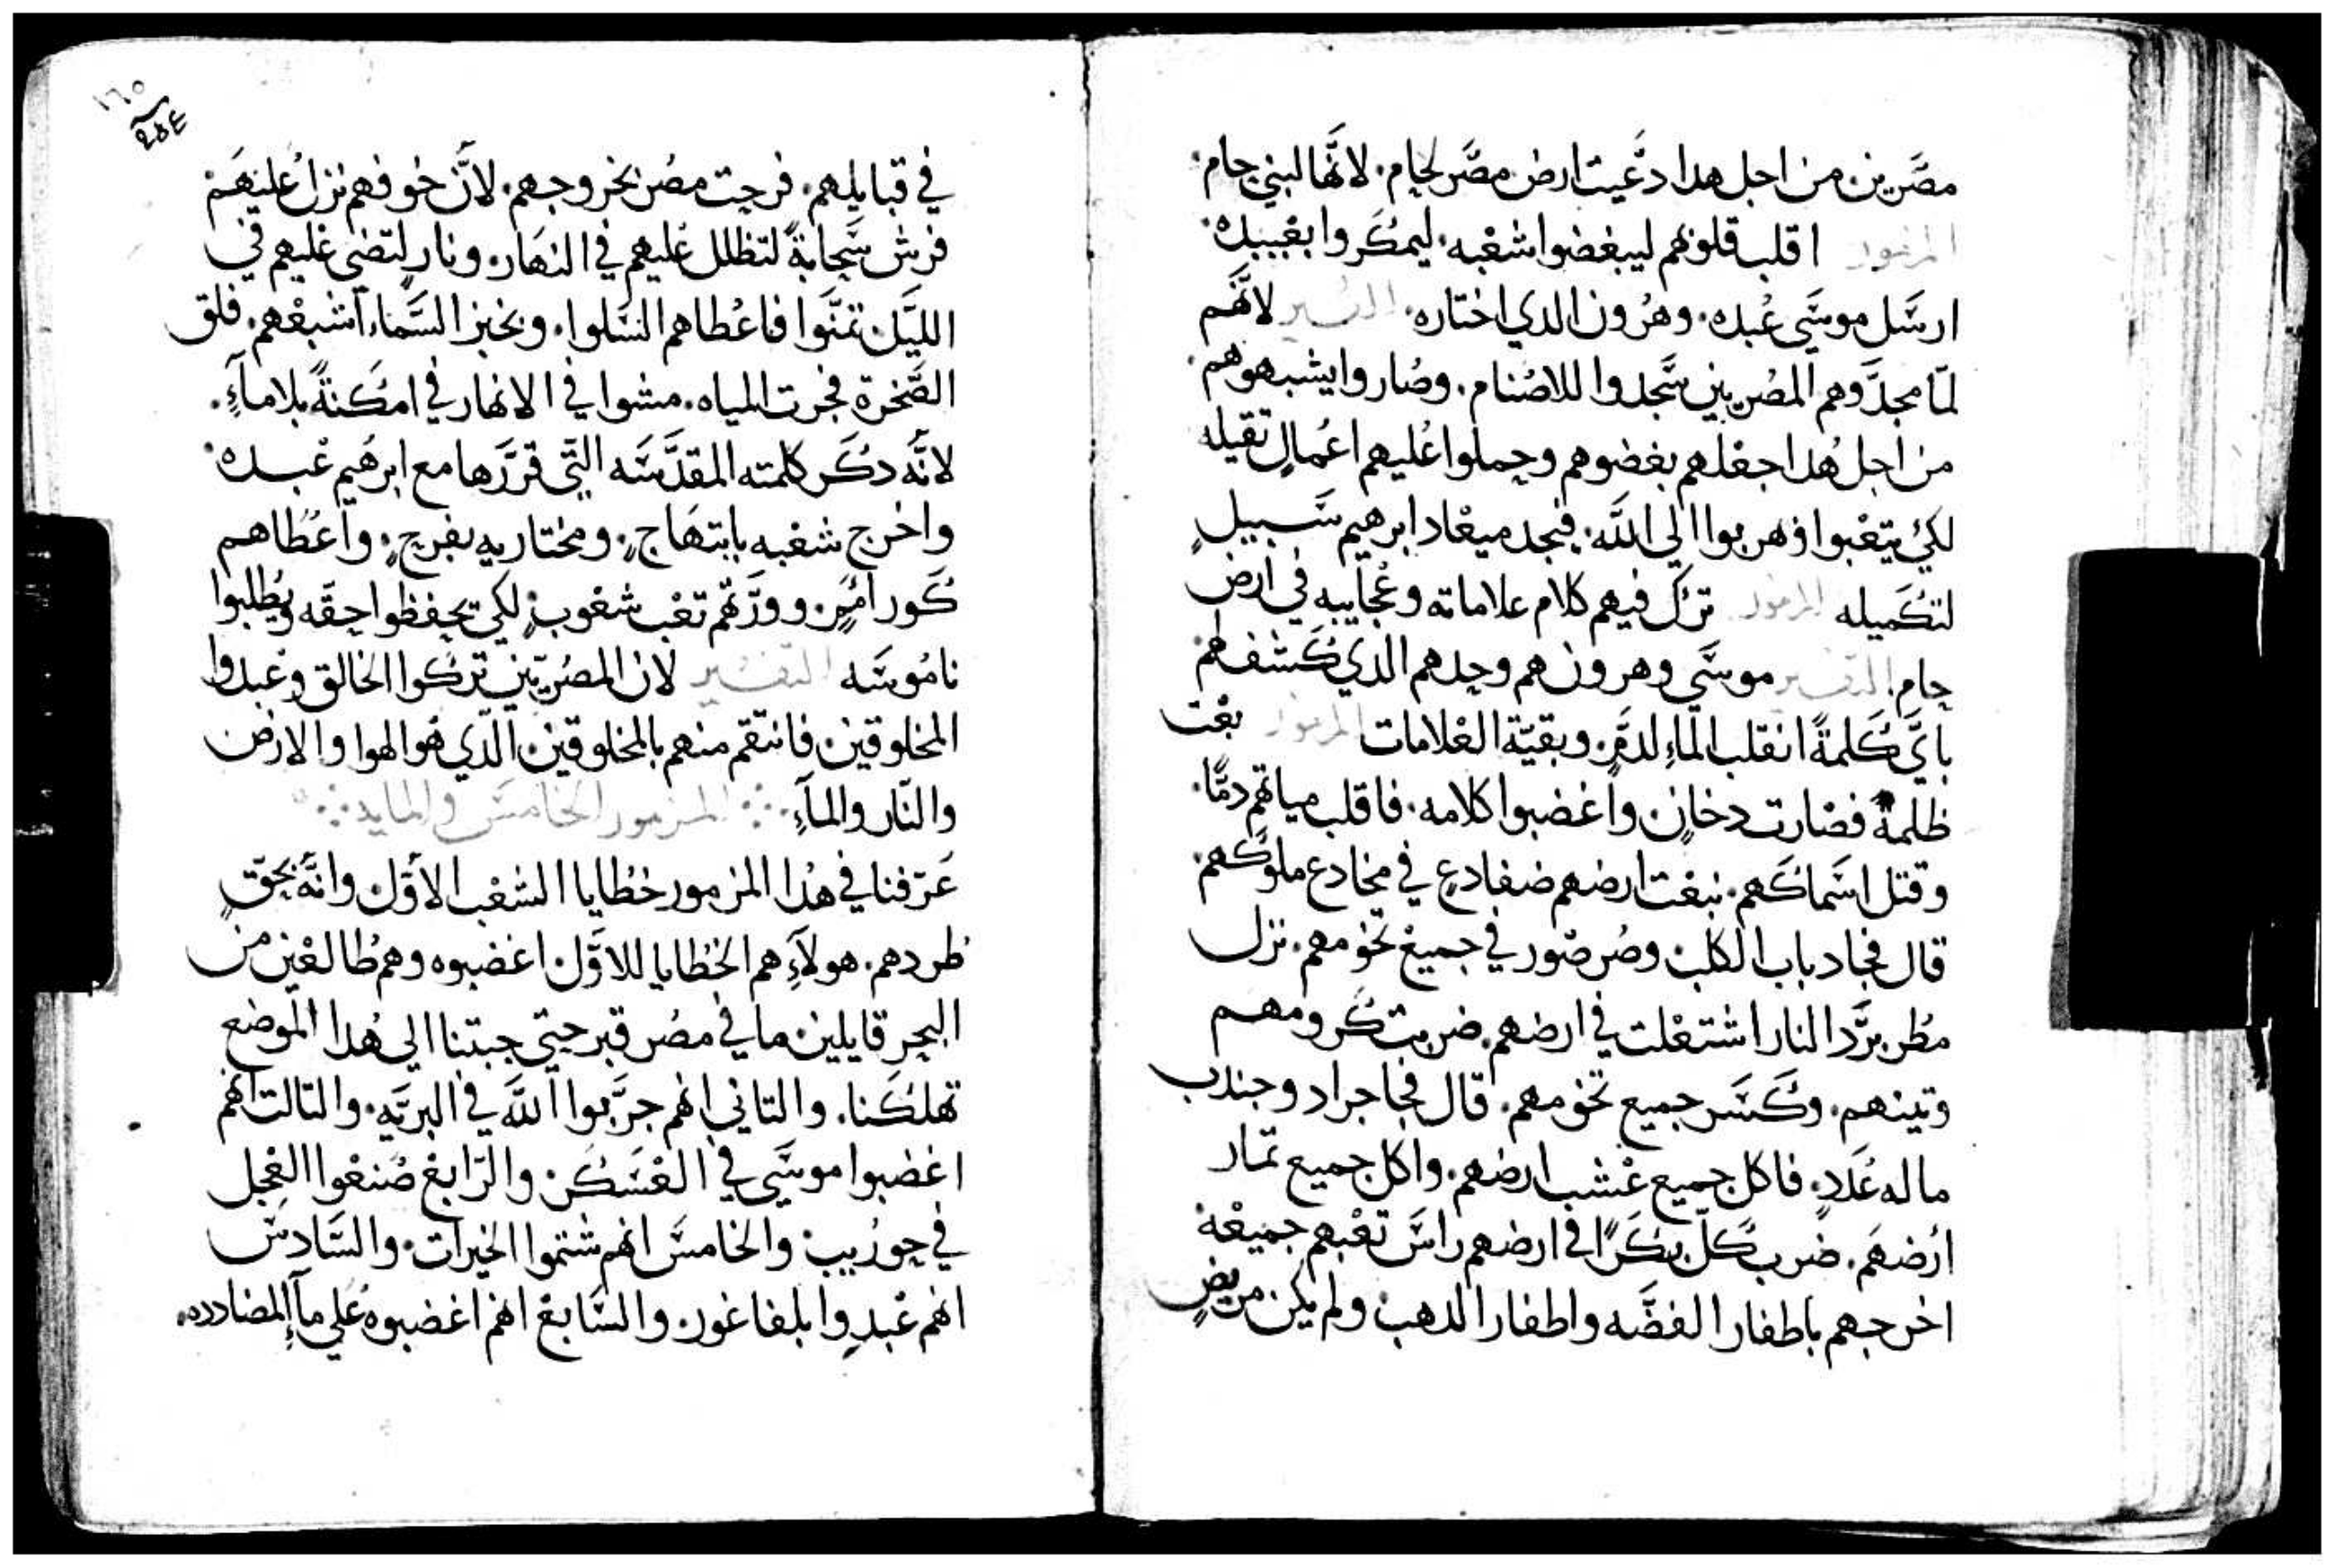 مصَّرين من اجل هدا دعَّيت ارض مصَّر لحام. لانَّها لبني حام.
المزمور اقلب قلوبهم ليبغضوا شعْبه. ليمكَروا بعْبيده.
ارسَل موسَي عُبده. وهرُون الدي اختاره. التفسير لانَّهَم
لمّا مجدَّوهم المصُريين سَجدوا للاصُنام. وصُاروا يشبهوهم.
من اجل هُدا جعْلهم بغضوهم وحملوا عُليهم اعُمالٍ تقيله
لكيْ يتعْبوا فهربوا الي اللَّه. فيجد ميعْاد ابرهيم سَبيلٍ
لتكَميله المزمور ترك فيهم كلام علاماته وعُجايبه في ارض
حام. التفسير موسَي وهرون هم وحدهم الدي كَشف لهم
بايَّ كَلمةً انقلب الماءِ لدمٍ. وبقيّة العْلامات المزمور بعْت
ظلمةً فصْارت دخانٍ واغضبوا كلامه. فاقلب مياهَم دمًّا.
وقتل اسَماكَهم. نبغت ارضهم ضفادعٍ في مخادع ملوكَهم.
قال فجا دباب الكلب وصُرصُور في جميعْ تخومهم. نزل
مطُر برَّد النار اشتعْلت في ارضهم. ضربت كَرومهم
وتينهم. وكَسَر جميع تخومهم. قال فجا جراد وجندب
ما له عُدَد. فاكل جميع عْشب ارضهم. واكل جميع تمار
ارُضهَم. ضرب كَلّ بكَرًا في ارضهم راسَ تعْبهم جميعْه.
اخرجهم باطفار الفضَّه واطفار الدهب ولم يكن مريضٍ
١٦٥
في قبايلهم. فرحت مصُر بخروجهم. لانَّ خوفهم نزل عُليهَم
فرش سَحابةً لتظلل عُليهم في النهَار. ونارٍ لتضي عْليهم في
الليَّل تمنَّوا فاعُطاهم السَلوا. وبخبز السَّماء اشبعْهم. فلق
الصَّخرة فجرت المياه. مشوا في الانهار في امكَنةً بلا مآءٍ.
لانَّه دكَر كلمته المقدَّسَه التّي قرَّرها مع ابرهَيم عْبده.
واخرج شعْبه بابتهَاجٍ. ومختاريه بفرحٍ. واعُطاهم
كَور اممٍ. وورَّتهم تعْب شعْوبٍ لكي يحفظوا حقَّه ويُطلبوا
نامُوسَه التفسير لان المصُريّين تركَوا الخالق وعْبدوا
المخلوقين فانتقم منهم بالمخلوقين الدّي هو الهوا والارض
والنّار والمآءِ ∴ المزمور الخامسَ والمايه ∴
عَرّفنا في هدُا المزمور خطُايا الشعْب الاوَّل وانَّه بحَقٍّ
طُردهم. هولآءِ هم الخطُايا للاوَّل اغضبوه وهم طُالعْين من
البحر قايلين ما في مصُر قبر حتي جبتنا الي هُدا الموضع
تهلكَنا. والتاني انهم جرَّبوا اللَّه في البريَّه. والتالت انهم
اغضبوا موسَي في العْسَكَر. والرّابعْ صُنعْوا العْجل
في حوريب. والخامسَ انهم شتموا الخيرات. والسَّادسَ
انهم عْبدوا بلفاغور. والسَّابعْ انهم اغضبوه عُلي مآءِ المضادده.